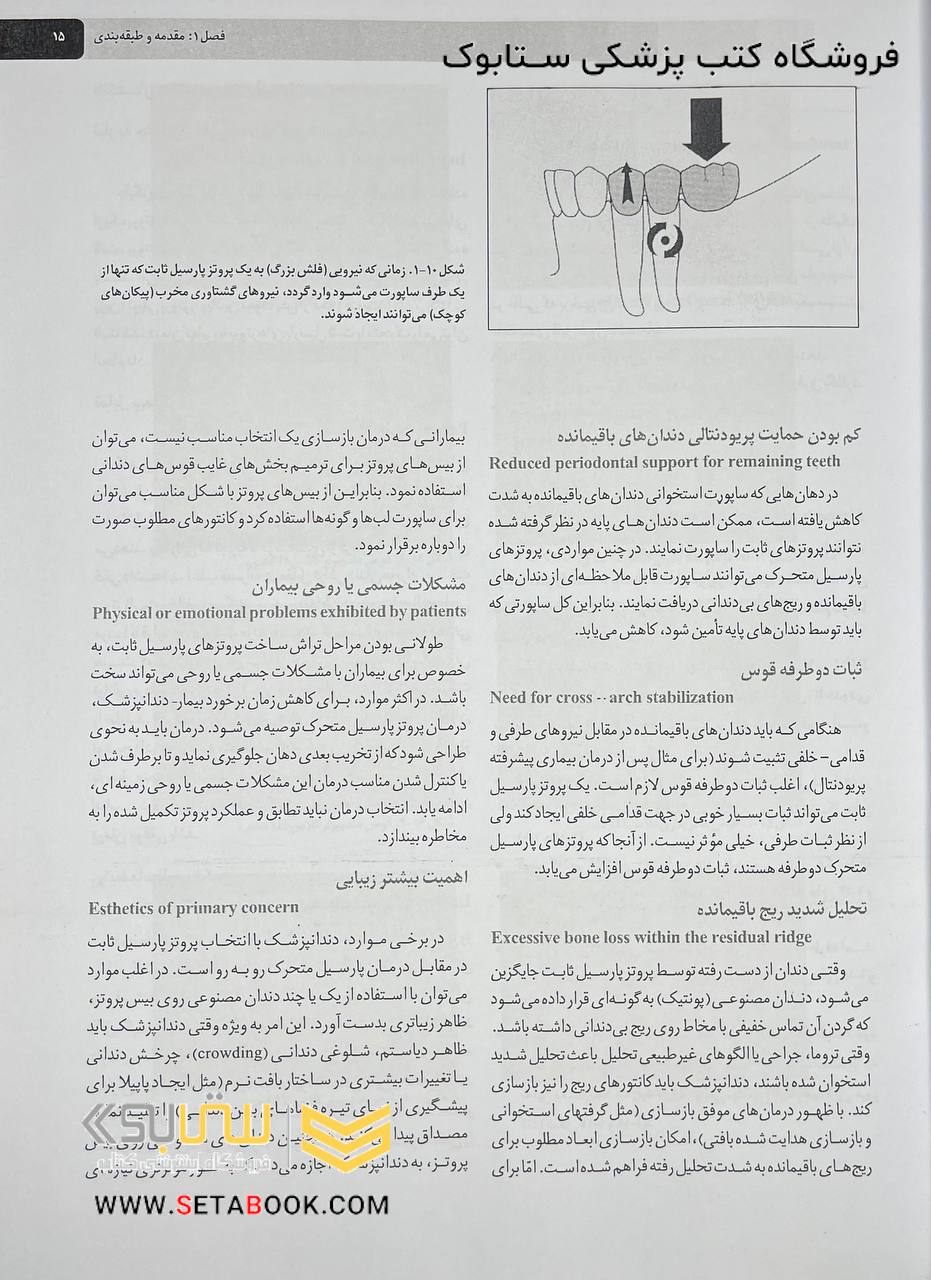 فصل ۱: مقدمه و طبقه‌بندی
۱۵
فروشگاه کتب پزشکی ستابوک
شکل ۱۰-۱. زمانی که نیرویی (فلش بزرگ) به یک پروتز پارسیل ثابت که تنها از
یک طرف ساپورت می‌شود وارد گردد، نیروهای گشتاوری مخرب (پیکان‌های
کوچک) می‌توانند ایجاد شوند.
کم بودن حمایت پریودنتالی دندان‌های باقیمانده
Reduced periodontal support for remaining teeth
در دهان‌هایی که ساپورت استخوانی دندان‌های باقیمانده به شدت
کاهش یافته است، ممکن است دندان‌های پایه در نظر گرفته شده
نتوانند پروتزهای ثابت را ساپورت نمایند. در چنین مواردی، پروتزهای
پارسیل متحرک می‌توانند ساپورت قابل ملاحظه‌ای از دندان‌های
باقیمانده و ریج‌های بی‌دندانی دریافت نمایند. بنابراین کل ساپورتی که
باید توسط دندان‌های پایه تأمین شود، کاهش می‌یابد.
ثبات دوطرفه قوس
Need for cross - arch stabilization
هنگامی که باید دندان‌های باقیمانده در مقابل نیروهای طرفی و
قدامی- خلفی تثبیت شوند (برای مثال پس از درمان بیماری پیشرفته
پریودنتال)، اغلب ثبات دوطرفه قوس لازم است. یک پروتز پارسیل
ثابت می‌تواند ثبات بسیار خوبی در جهت قدامی خلفی ایجاد کند ولی
از نظر ثبات طرفی، خیلی مؤثر نیست. از آنجا که پروتزهای پارسیل
متحرک دوطرفه هستند، ثبات دوطرفه قوس افزایش می‌یابد.
تحلیل شدید ریج باقیمانده
Excessive bone loss within the residual ridge
وقتی دندان از دست رفته توسط پروتز پارسیل ثابت جایگزین
می‌شود، دندان مصنوعی (پونتیک) به گونه‌ای قرار داده می‌شود
که گردن آن تماس خفیفی با مخاط روی ریج بی‌دندانی داشته باشد.
وقتی تروما، جراحی یا الگوهای غیرطبیعی تحلیل باعث تحلیل شدید
استخوان شده باشند، دندانپزشک باید کانتورهای ریج را نیز بازسازی
کند. با ظهور درمان‌های موفق بازسازی (مثل گرفتهای استخوانی
و بازسازی هدایت شده بافتی)، امکان بازسازی ابعاد مطلوب برای
ریج‌های باقیمانده به شدت تحلیل رفته فراهم شده است. امّا برای
بیمارانی که درمان بازسازی یک انتخاب مناسب نیست، می‌توان
از بیس‌های پروتز برای ترمیم بخش‌های غایب قوس‌های دندانی
استفاده نمود. بنابراین از بیس‌های پروتز با شکل مناسب می‌توان
برای ساپورت لب‌ها و گونه‌ها استفاده کرد و کانتورهای مطلوب صورت
را دوباره برقرار نمود.
مشکلات جسمی یا روحی بیماران
Physical or emotional problems exhibited by patients
طولانی بودن مراحل تراش ساخت پروتزهای پارسیل ثابت، به
خصوص برای بیماران با مشکلات جسمی یا روحی می‌تواند سخت
باشد. در اکثر موارد، برای کاهش زمان برخورد بیمار- دندانپزشک،
درمان پروتز پارسیل متحرک توصیه می‌شود. درمان باید به نحوی
طراحی شود که از تخریب بعدی دهان جلوگیری نماید و تا برطرف شدن
یا کنترل شدن مناسب درمان این مشکلات جسمی یا روحی زمینه ای،
ادامه یابد. انتخاب درمان نباید تطابق و عملکرد پروتز تکمیل شده را به
مخاطره بیندازد.
اهمیت بیشتر زیبایی
Esthetics of primary concern
در برخی موارد، دندانپزشک با انتخاب پروتز پارسیل ثابت
در مقابل درمان پارسیل متحرک رو به رو است. در اغلب موارد
می‌توان با استفاده از یک یا چند دندان مصنوعی روی بیس پروتز،
ظاهر زیباتری بدست آورد. این امر به ویژه وقتی دندانپزشک باید
ظاهر دیاستم، شلوغی دندانی (crowding)، چرخش دندانی
یا تغییرات بیشتری در ساختار بافت نرم (مثل ایجاد پاپیلا برای
پیشگیری از
مصداق پیدا
پروتز، به دندانپزشک اجازه
ستابوک
فروشگاه اینترنتی کتاب
WWW.SETABOOK.COM